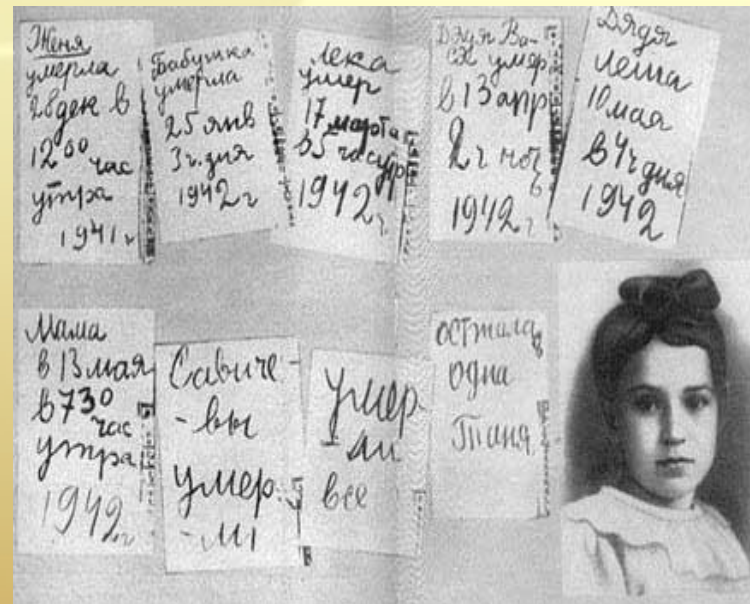 Женя
умерла
28 дек в
12 00 час
утра
1941 г
Бабушка
умерла
25 янв
3 ч. дня
1942 г
Лека
умер
17 марта
в 5 час утр
1942 г.
Дядя Ва-
ся умер
в 13 апр
2 ч ноч
1942 г
Дядя
Леша
10 мая
в 4 ч дня
1942
Мама
в 13 мая
в 7 30
час
утра
1942 г
Савиче-
-вы
умер
-ли
умер
-ли
все
осталась
одна
Таня